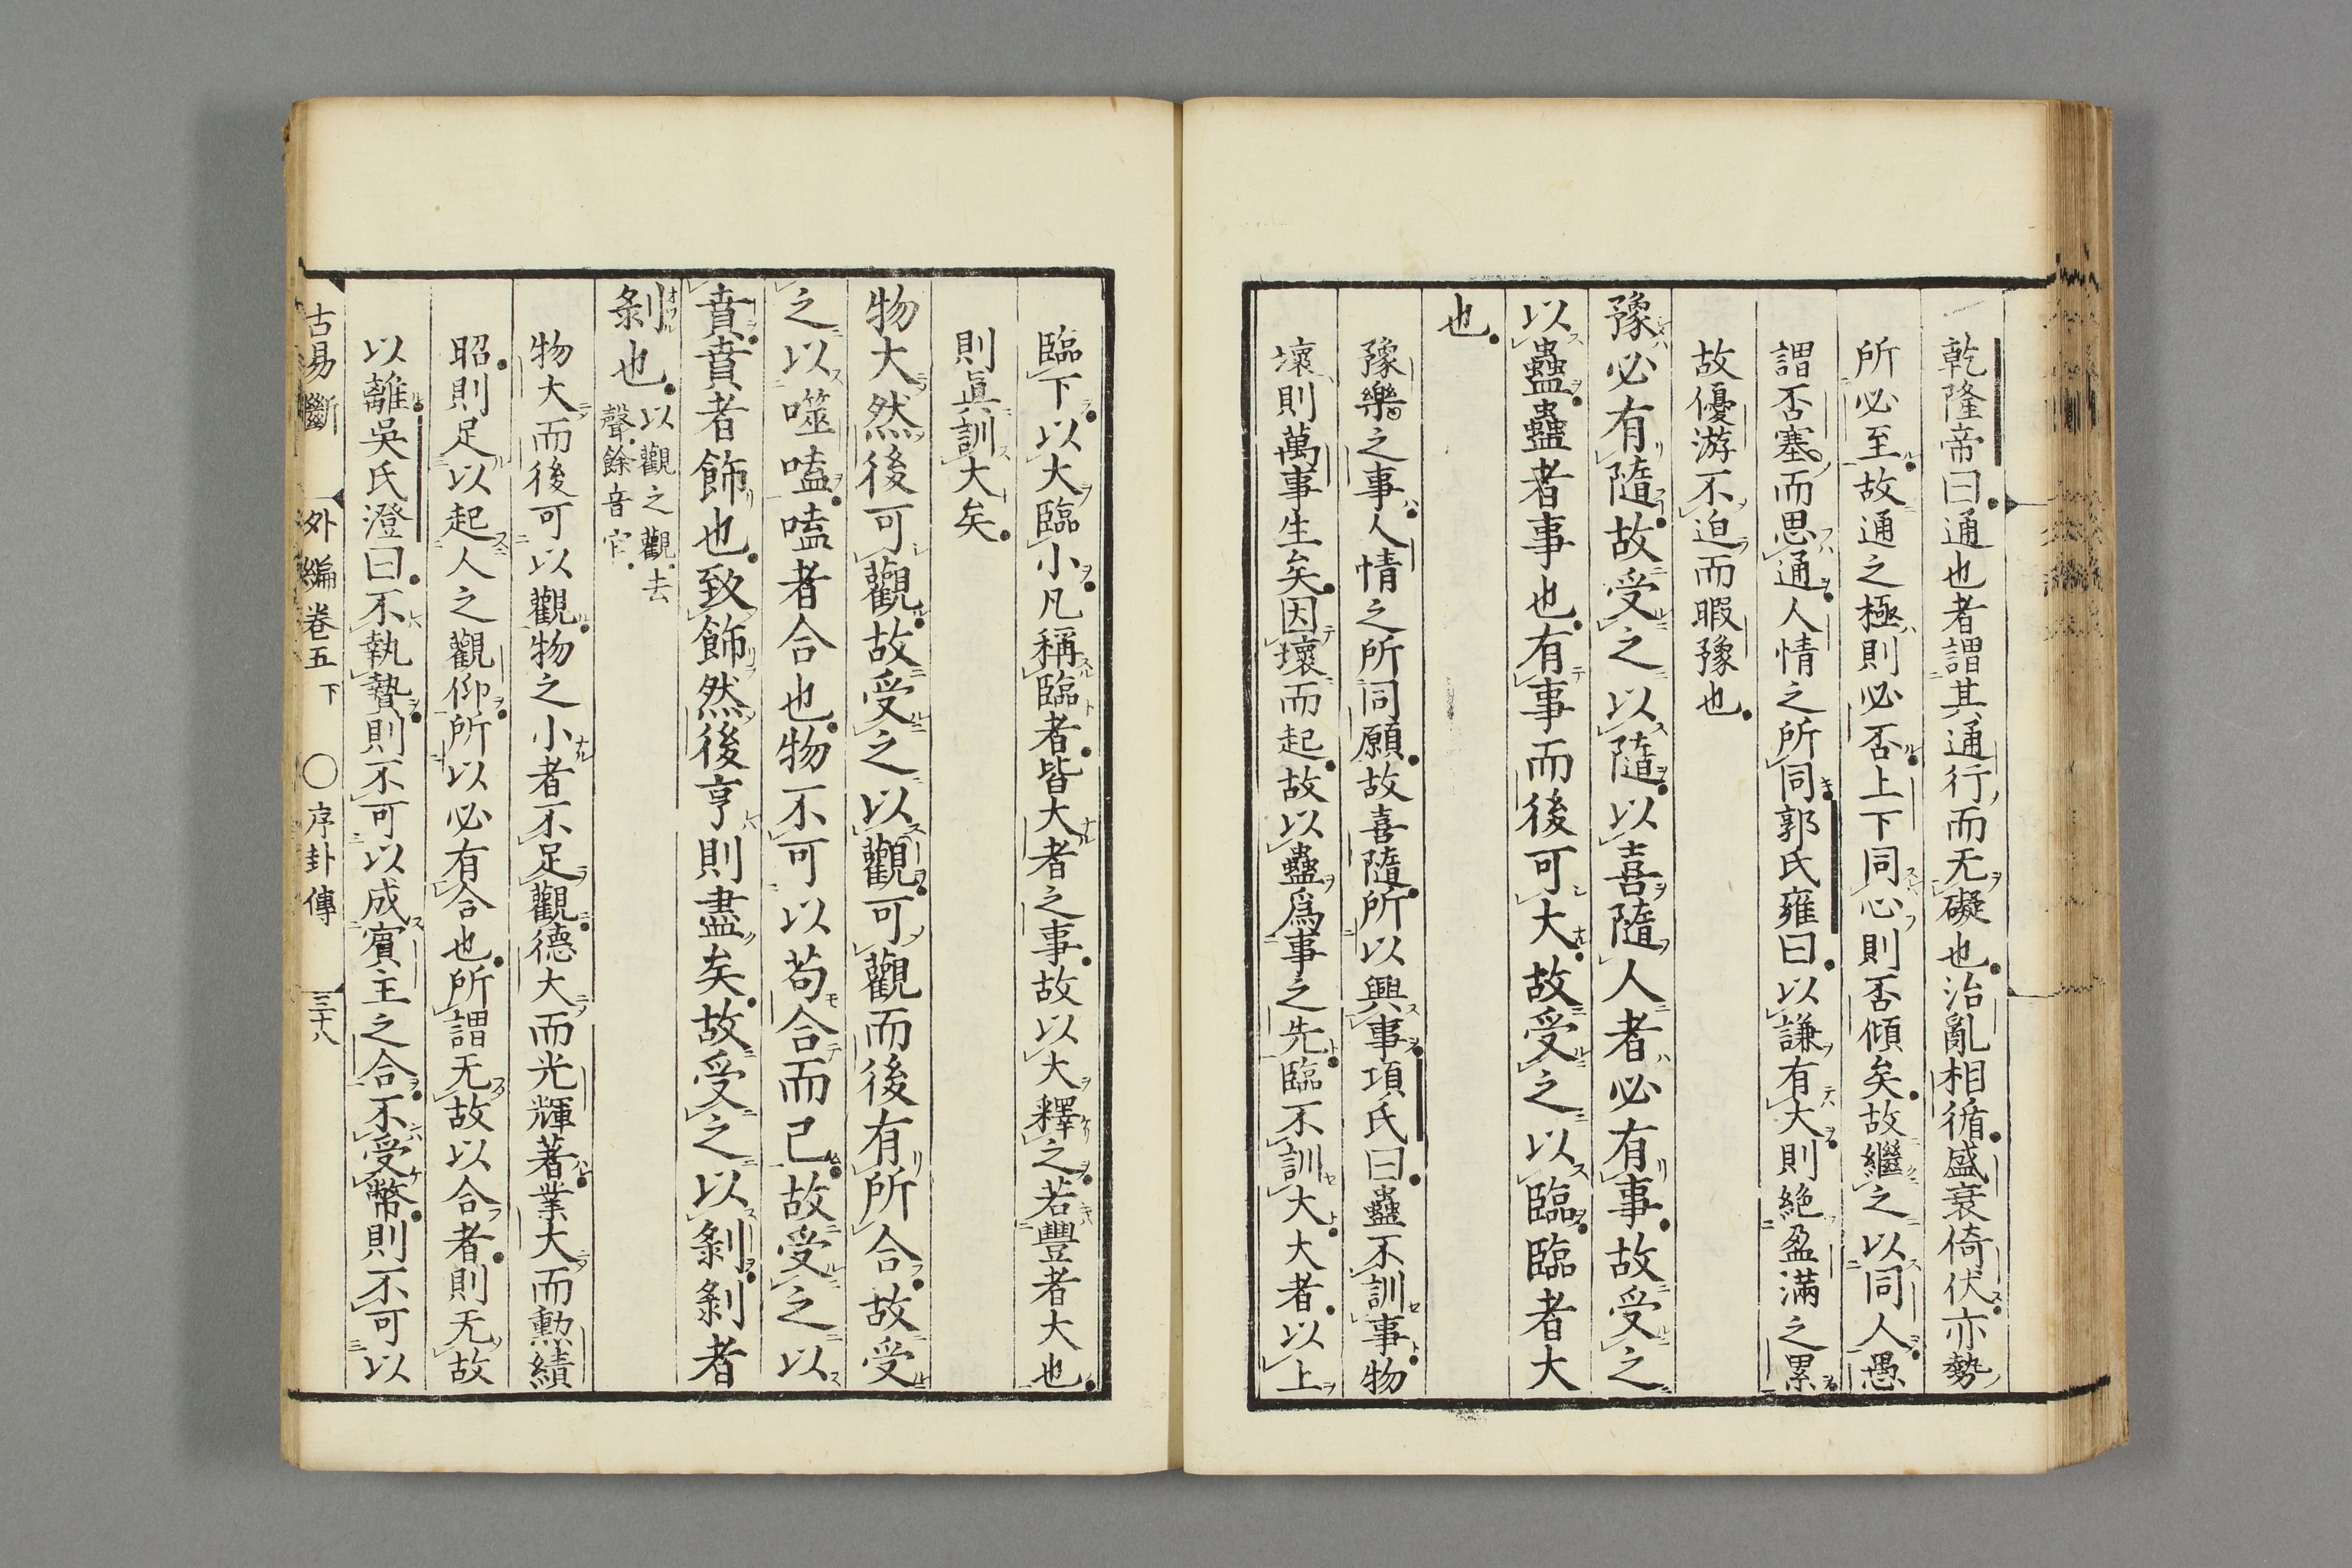 乾隆帝曰通也者謂其通行而无礙也治亂相循盛衰倚伏亦勢
所必至故通之極則必否上下同心則否傾矣故繼之以同人愚
謂否塞而思通人情之所同郭氏雍曰以謙有大則絶盈滿之累
故優游不迫而暇豫也
豫必有隨故受之以隨以喜隨人者必有事故受之
以蠱蠱者事也有事而後可大故受之以臨臨者大
也
豫樂之事人情之所同願故喜隨所以興事項氏曰蠱不訓事物
壞則萬事生矣因壞而起故以蠱爲事之先臨不訓大大者以上
臨下以大臨小凡稱臨者皆大者之事故以大釋之若豐者大也
則眞訓大矣
物大然後可觀故受之以觀可觀而後有所合故受
之以噬嗑嗑者合也物不可以苟合而已故受之以
賁賁者飾也致飾然後亨則盡矣故受之以剝剝者
剝也以觀之觀去
聲餘音官
物大而後可以觀物之小者不足觀德大而光輝著業大而勲績
昭則足以起人之觀仰所以必有合也所謂无故以合者則无故
以離吳氏澄曰不執贄則不可以成賓主之合不受幣則不可以
古易斷 外編卷五下 〇序卦傳 三十八